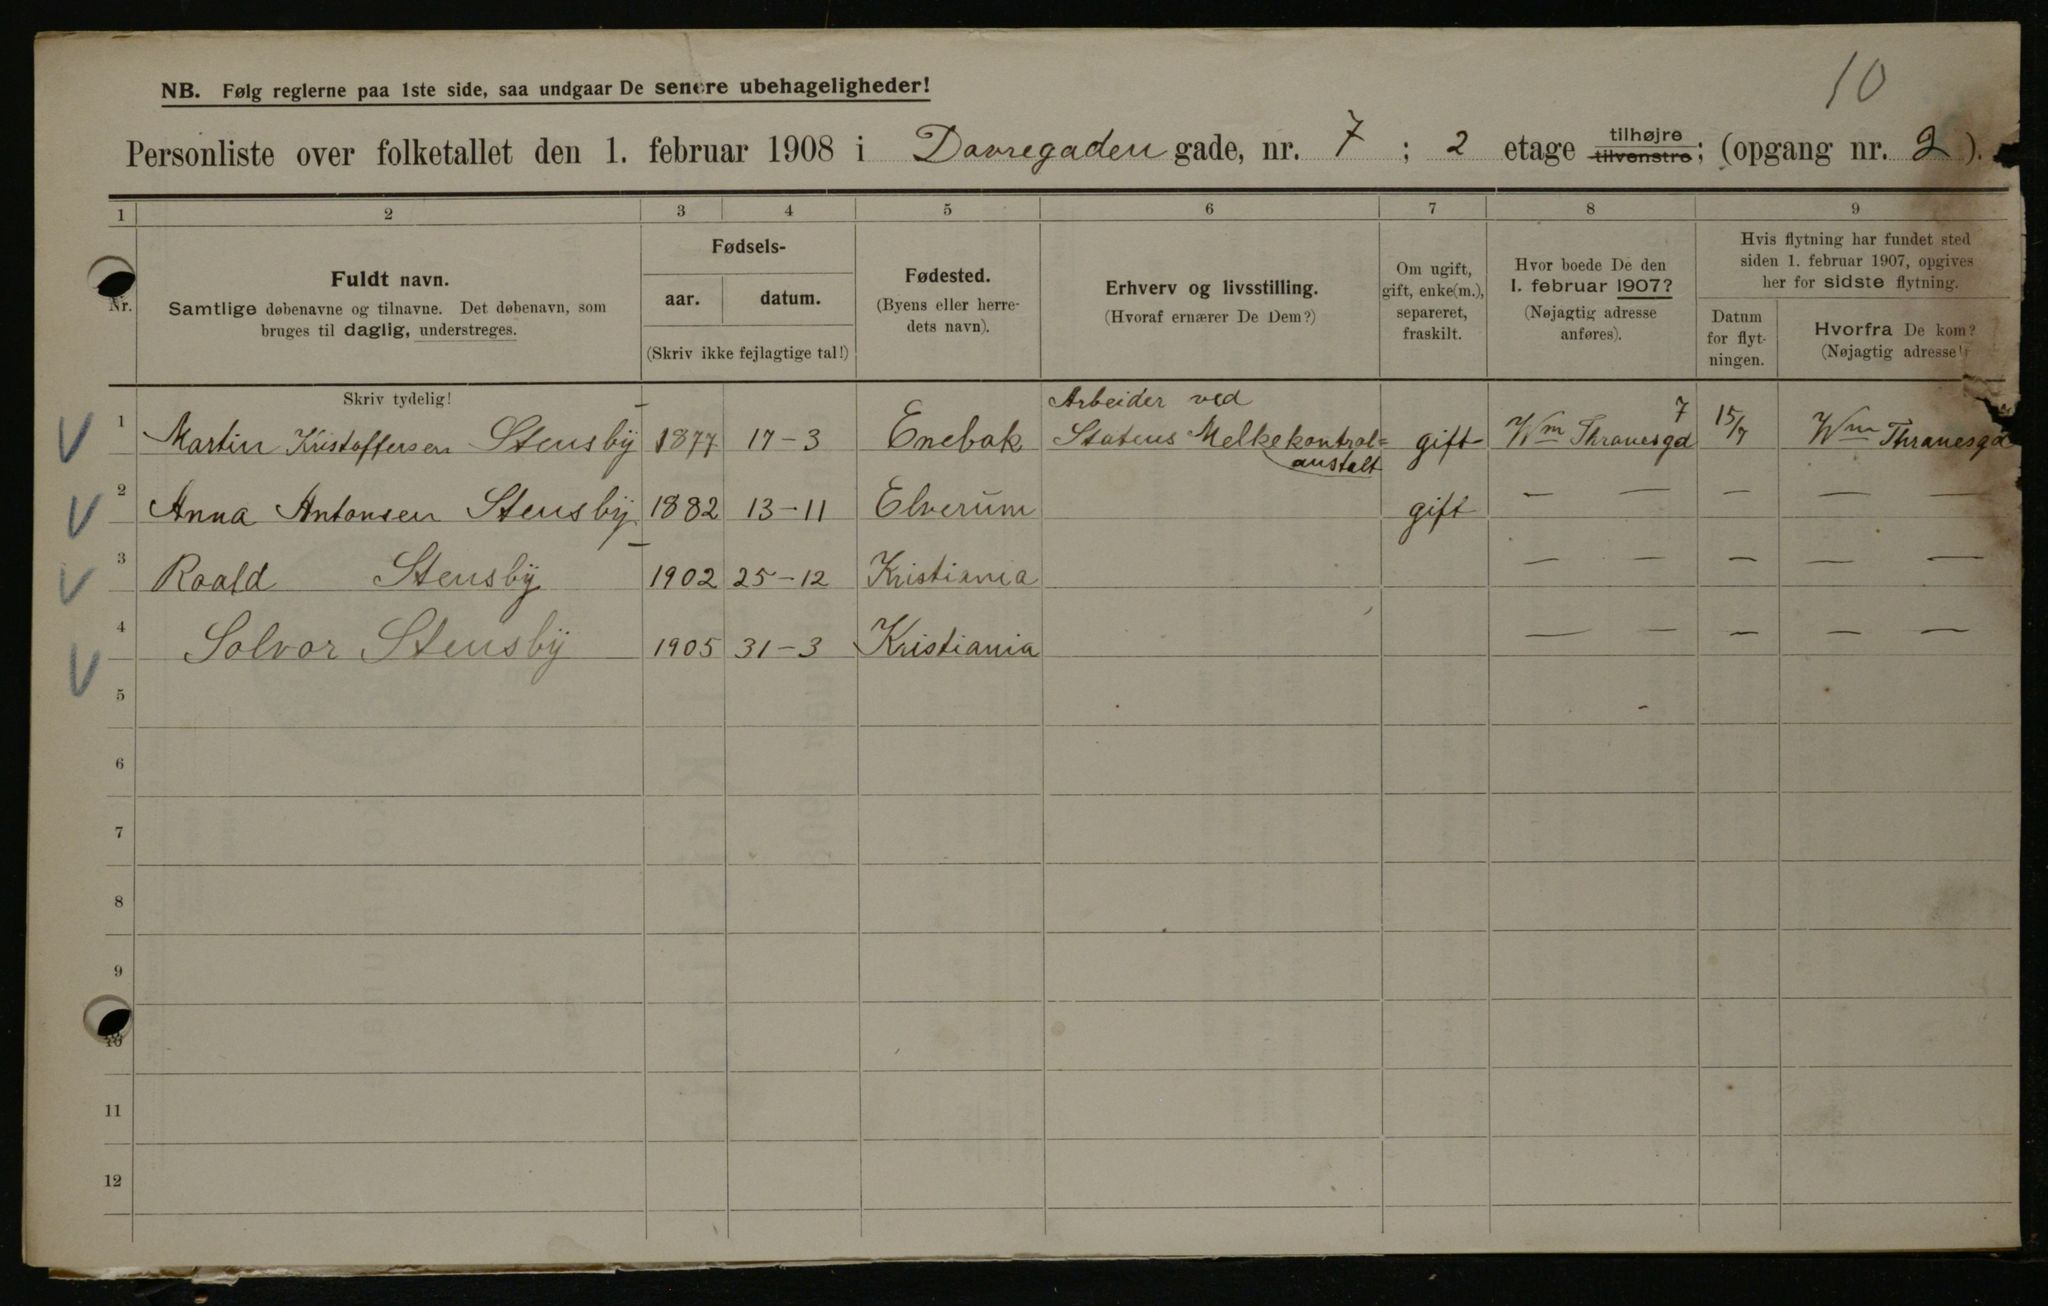 10
NB. Følg reglerne paa 1ste side, saa undgaar De senere ubehageligheder!
Personliste over folketallet den 1. februar 1908 i Dovregaden gade, nr. 7 ; 2 etage tilhøjre tilvenstre; (opgang nr. 2 ).
1 2 3 4 5 6 7 8 9
Nr.
Fuldt navn.
Samtlige døbenavne og tilnavne. Det døbenavn, som
bruges til daglig, understreges.
Fødsels-
aar. datum.
(Skriv ikke fejlagtige tal!)
Fødested.
(Byens eller herre-
dets navn).
Erhverv og livsstilling.
(Hvoraf ernærer De Dem?)
Om ugift,
gift, enke(m.),
separeret,
fraskilt.
Hvor boede De den
1. februar 1907?
(Nøjagtig adresse
anføres).
Hvis flytning har fundet sted
siden 1. februar 1907, opgives
her for sidste flytning.
Datum
for flyt-
ningen.
Hvorfra De kom?
(Nøjagtig adresse!)
Skriv tydelig!
1 Martin Kristoffersen Stensby 1877 17-3 Enebak Arbeider ved Statens Melkekontrol=anstalt gift Wm Thranesgd 7 15/7 Wm Thranesgd
2 Anna Antonsen Stensby 1882 13-11 Elverum gift — — — — —
3 Roald Stensby 1902 25-12 Kristiania — — — — —
4 Solvor Stensby 1905 31-3 Kristiania — — — — —
5
6
7
8
9
10
11
12